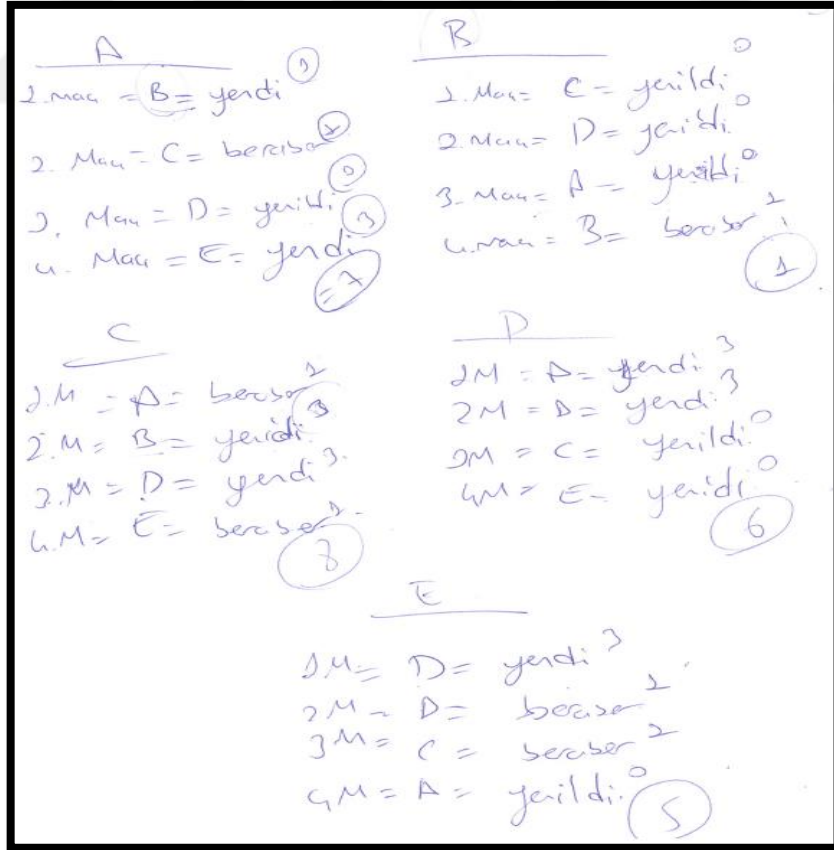 A
1. maç = B = yendi 3
2. Maç = C = beraber 1
3. Maç = D = yenildi 0
4. Maç = E = yendi 3
= 7
B
1. Maç = C = yenildi 0
2. Maç = D = yenildi 0
3. Maç = A = yenildi 0
4. maç = B = beraber 1
1
C
1.M = A = beraber 1
2.M = B = yenidi 3
3.M = D = yendi 3
4.M = E = beraber 1
8
D
1M = A = yendi 3
2M = B = yendi 3
3M = C = yenildi 0
4M = E = yenidi 0
6
E
1M = D = yendi 3
2M = B = beraber 1
3M = C = beraber 1
4M = A = yenildi 0
5